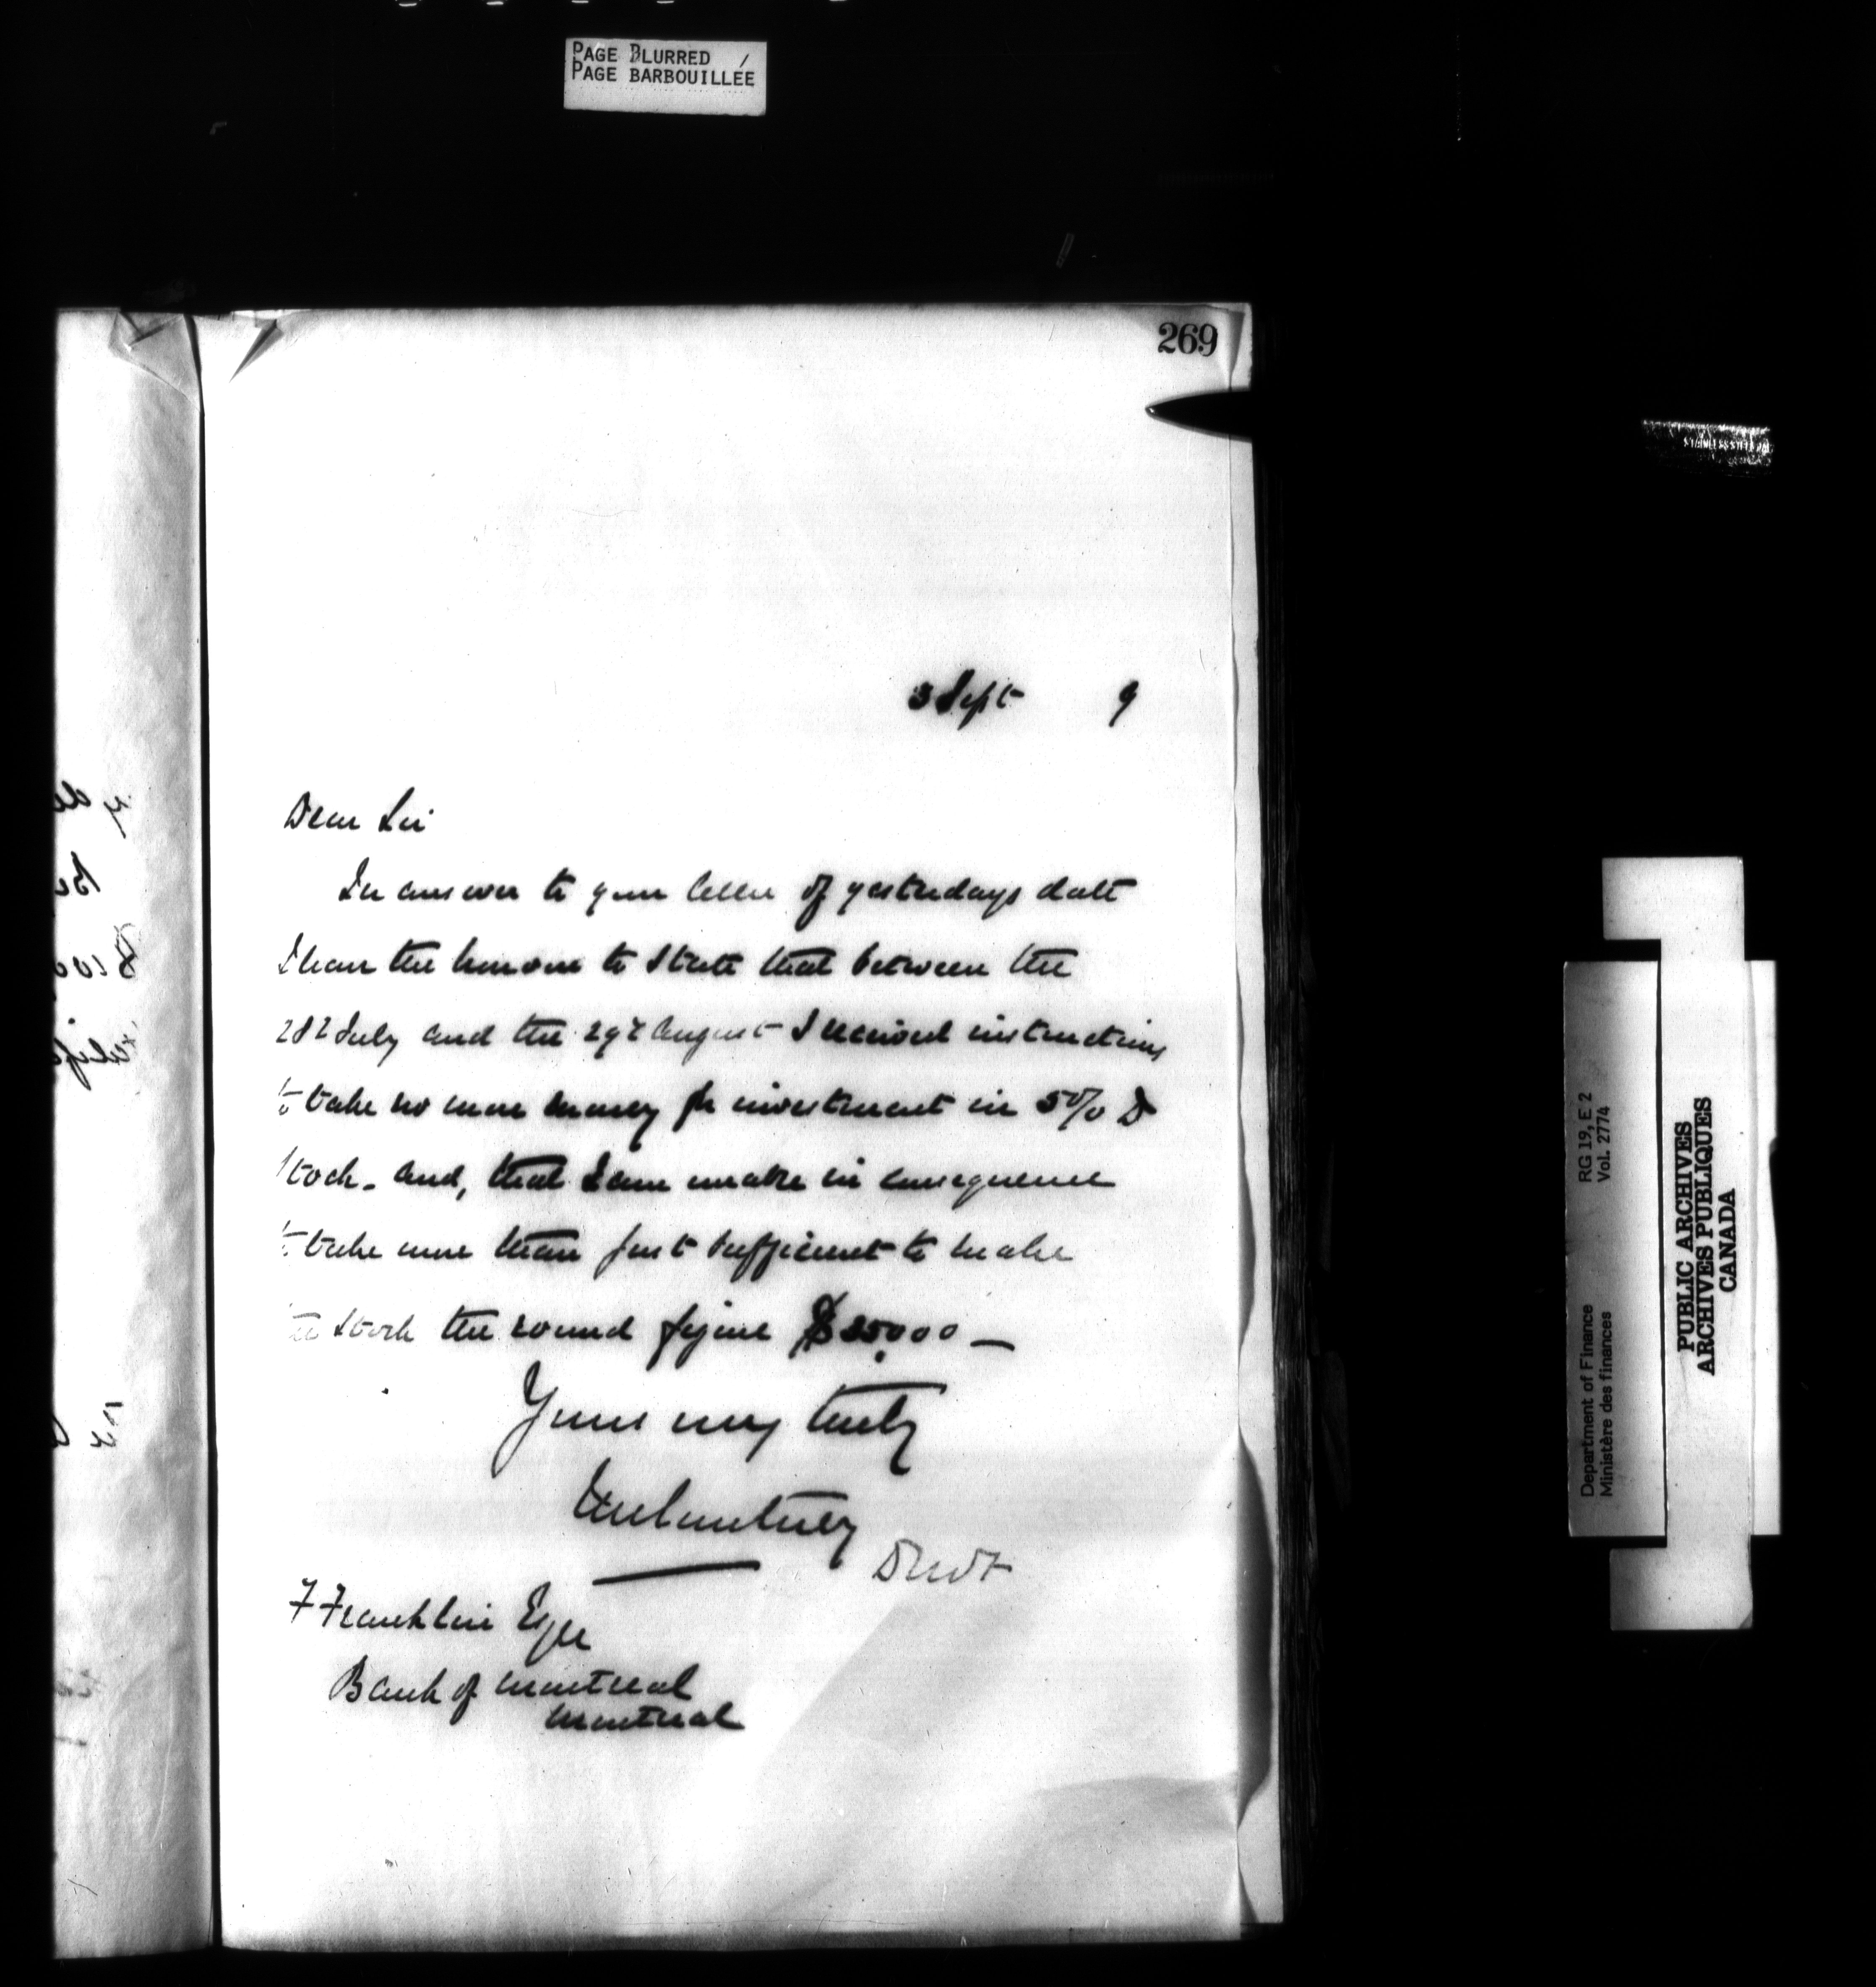 PAGE BLURRED /
PAGE BARBOUILLÉE
269
3 Sept 9
Dear Sir
In answer to your letter of yesterdays date
I have the honour to state that between the
28t July and the 29t August I received instructions
to take no more money for investment in 5% D
Stock. and, that I am unable in consequence
to take more than just sufficient to make
the Stock the round figure
Yours very truly
F Franklin Esqre
Bank of Montreal
Montreal
Department of Finance RG 19, E 2
Ministère des finances Vol. 2774
PUBLIC ARCHIVES
ARCHIVES PUBLIQUES
CANADA